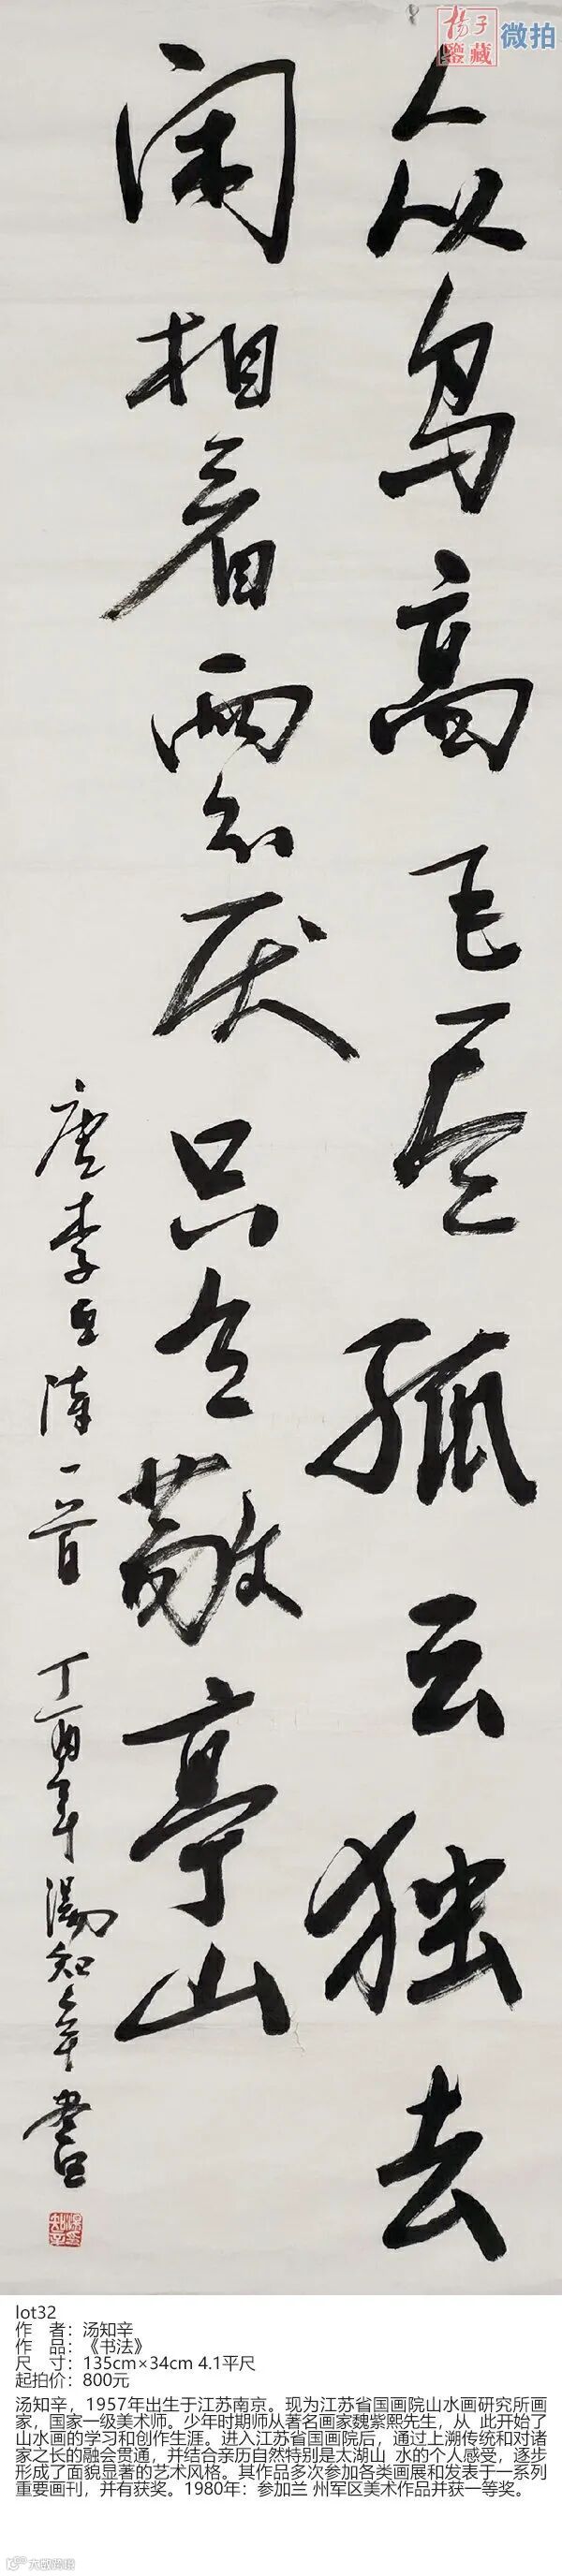 揚子
鑒藏
微拍
众鸟高飞尽孤云独去
闲相看兩不厌只有敬亭山
唐李白诗一首 丁酉年湯知辛书
lot32
作 者：汤知辛
作 品：《书法》
尺 寸：135cm×34cm 4.1平尺
起拍价：800元
汤知辛，1957年出生于江苏南京。现为江苏省国画院山水画研究所画
家，国家一级美术师。少年时期师从著名画家魏紫熙先生，从 此开始了
山水画的学习和创作生涯。进入江苏省国画院后，通过上溯传统和对诸
家之长的融会贯通，并结合亲历自然特别是太湖山 水的个人感受，逐步
形成了面貌显著的艺术风格。其作品多次参加各类画展和发表于一系列
重要画刊，并有获奖。1980年：参加兰 州军区美术作品并获一等奖。
大数跨境